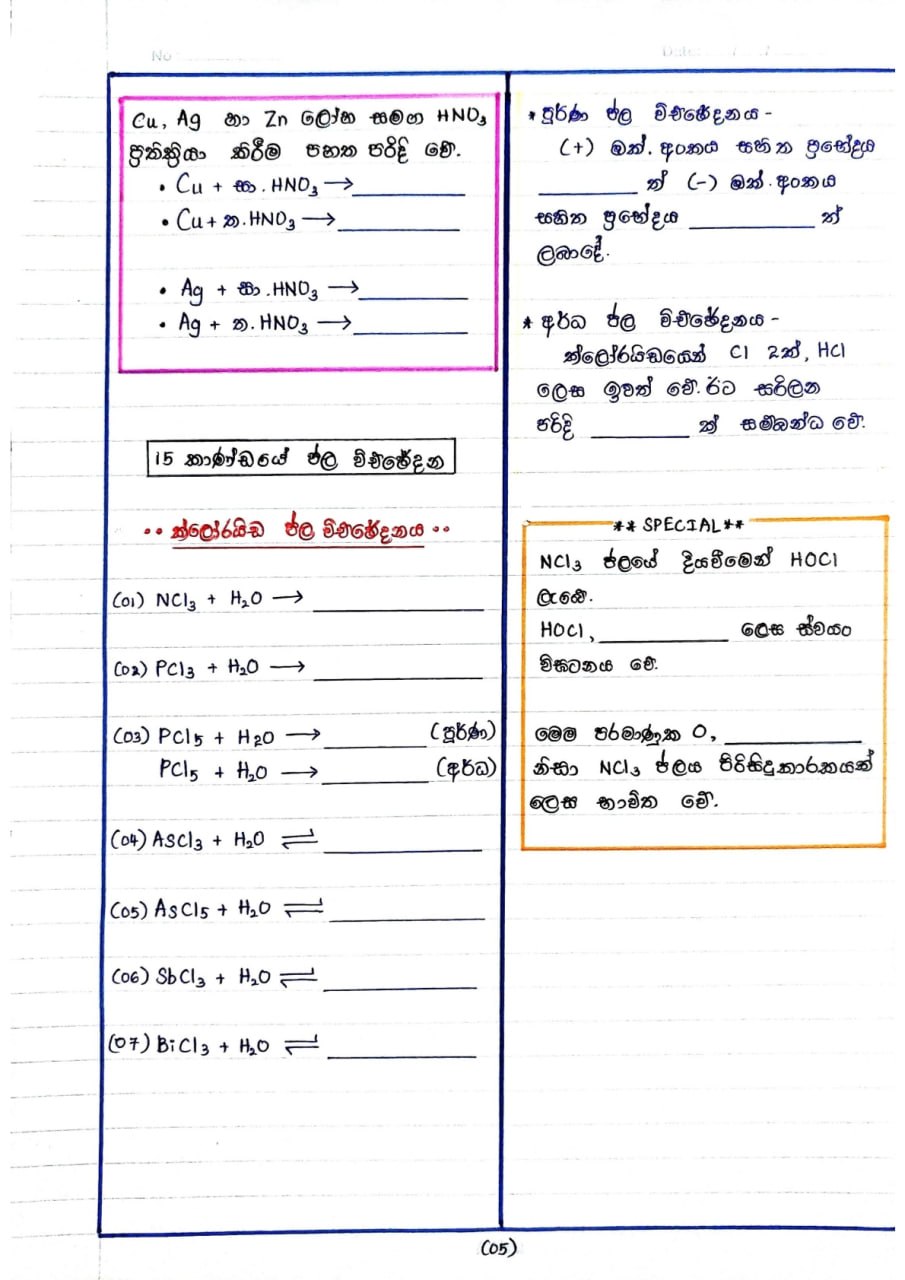 No
Date: / /
Cu, Ag හා Zn ලෝහ සමග HNO₃
ප්‍රතික්‍රියා කිරීම පහත පරිදි වේ.
• Cu + සා. HNO₃ → __________
• Cu + ත. HNO₃ → __________
• Ag + සා. HNO₃ → __________
• Ag + ත. HNO₃ → __________
15 කාණ්ඩයේ ජල විච්ඡේදන
•• ක්ලෝරයිඩ ජල විච්ඡේදනය ••
(01) NCl₃ + H₂O → __________
(02) PCl₃ + H₂O → __________
(03) PCl₅ + H₂O → __________ (පූර්ණ)
PCl₅ + H₂O → __________ (අර්ධ)
(04) AsCl₃ + H₂O ⇌ __________
(05) AsCl₅ + H₂O ⇌ __________
(06) SbCl₃ + H₂O ⇌ __________
(07) BiCl₃ + H₂O ⇌ __________
* පූර්ණ ජල විච්ඡේදනය -
(+) ඔක්. අංකය සහිත ප්‍රභේදය
__________ ත් (-) ඔක්. අංකය
සහිත ප්‍රභේදය __________ ත්
ලබාදේ.
* අර්ධ ජල විච්ඡේදනය -
ක්ලෝරයිඩයෙන් Cl 2ක්, HCl
ලෙස ඉවත් වේ. ඊට සරිලන
පරිදි __________ ත් සම්බන්ධ වේ.
** SPECIAL **
NCl₃ ජලයේ දියවීමෙන් HOCl
ලැබේ.
HOCl, __________ ලෙස ස්වයං
විඝටනය වේ.
මෙම පරමාණුක O, __________
නිසා NCl₃ ජලය පිරිසිදුකාරකයක්
ලෙස භාවිත වේ.
(05)